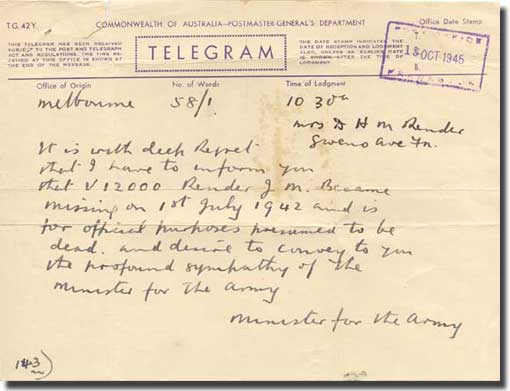 T.G. 42Y.
COMMONWEALTH OF AUSTRALIA—POSTMASTER-GENERAL'S DEPARTMENT
Office Date Stamp
THIS TELEGRAM HAS BEEN RECEIVED
SUBJECT TO THE POST AND TELEGRAPH
ACT AND REGULATIONS. THE TIME RE-
CEIVED AT THIS OFFICE IS SHOWN AT
THE END OF THE MESSAGE.
TELEGRAM
THE DATE STAMP INDICATES THE
DATE OF RECEPTION AND LODGMENT
ALSO, UNLESS AN EARLIER DATE
IS SHOWN AFTER THE TIME OF
LODGMENT.
OCT 1945
Office of Origin
No. of Words
Time of Lodgment
Melbourne 58/1 10 30a
Mrs D H M Render
Ave
It is with deep Regret
that I have to inform you
that V12000 Render J. M. Became
missing on 1st July 1942 and is
for official purposes presumed to be
dead. and desire to convey to you
the profound sympathy of the
Minister for the Army
Minister for the Army